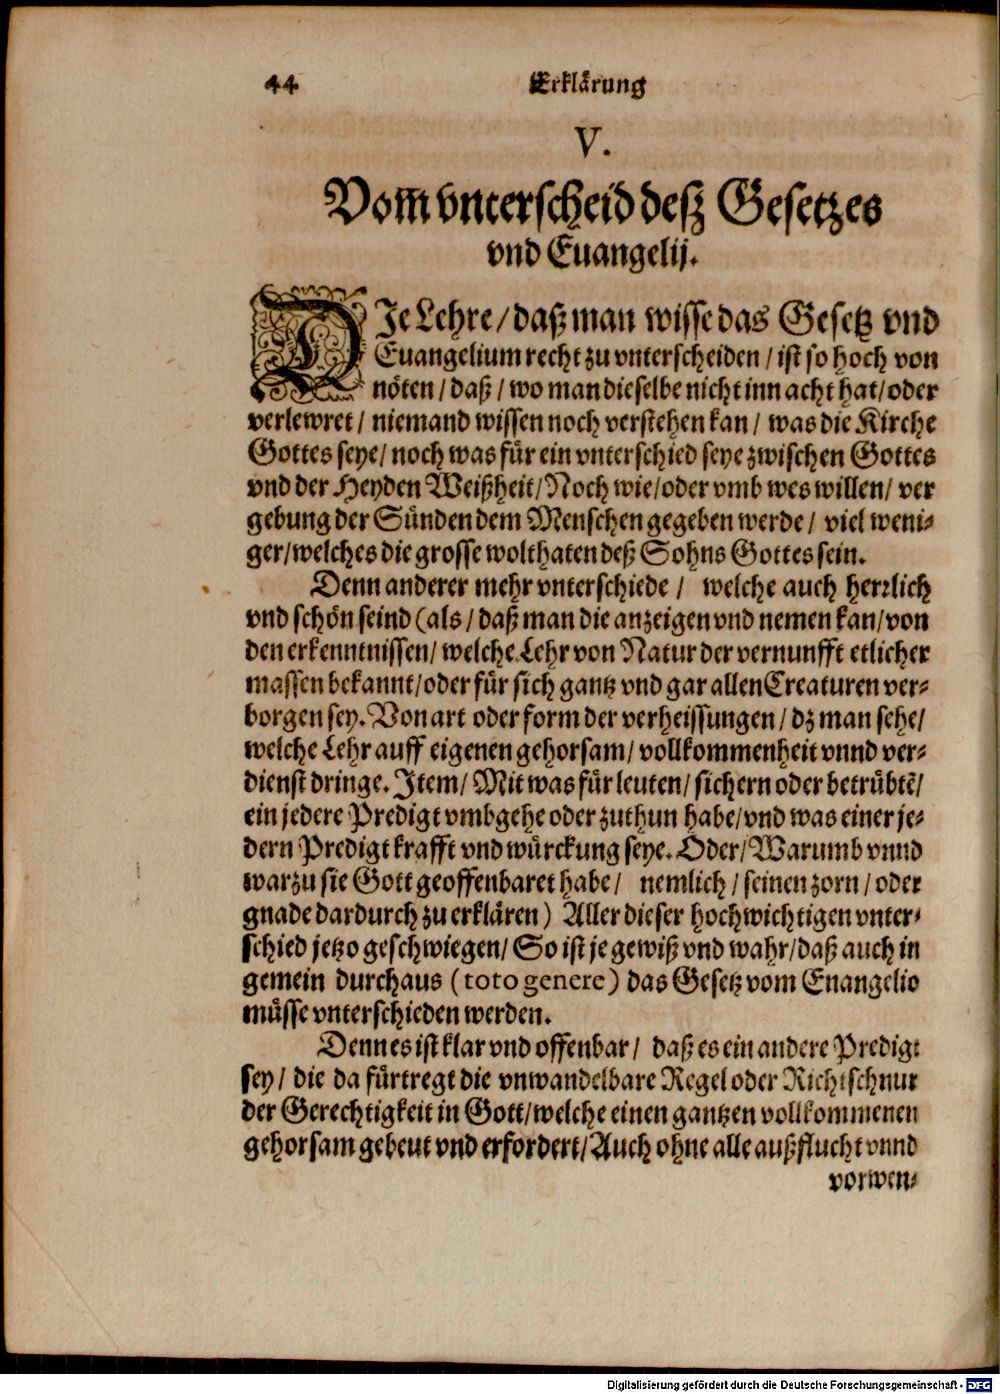 44 Erklärung
V.
Vom̄ vnterscheid desz Gesetzes
vnd Euangelij.
DIe Lehre / daß man wisse das Gesetz vnd
Euangelium recht zu vnterscheiden / ist so hoch von
nöten / daß / wo man dieselbe nicht inn acht hat / oder
verlewret / niemand wissen noch verstehen kan / was die Kirche
Gottes seye / noch was für ein vnterschied seye zwischen Gottes
vnd der Heyden Weißheit / Noch wie / oder vmb wes willen / ver
gebung der Sünden dem Menschen gegeben werde / viel weni-
ger / welches die grosse wolthaten deß Sohns Gottes sein.
Denn anderer mehr vnterschiede / welche auch herrlich
vnd schön seind (als / daß man die anzeigen vnd nemen kan / von
den erkenntnissen / welche Lehr von Natur der vernunfft etlicher
massen bekannt / oder für sich gantz vnd gar allen Creaturen ver-
borgen sey. Von art oder form der verheissungen / dz man sehe /
welche Lehr auff eigenen gehorsam / vollkommenheit vnnd ver-
dienst dringe. Item / Mit was für leuten / sichern oder betrübtē /
ein jedere Predigt vmbgehe oder zuthun habe / vnd was einer je-
dern Predigt krafft vnd würckung seye. Oder / Warumb vnnd
warzu sie Gott geoffenbaret habe / nemlich / seinen zorn / oder
gnade dardurch zu erklären) Aller dieser hochwichtigen vnter-
schied jetzo geschwiegen / So ist je gewiß vnd wahr / daß auch in
gemein durchaus (toto genere) das Gesetz vom Enangelio
müsse vnterschieden werden.
Denn es ist klar vnd offenbar / daß es ein andere Predigt
sey / die da fürtregt die vnwandelbare Regel oder Richtschnur
der Gerechtigkeit in Gott / welche einen gantzen vollkommenen
gehorsam gebeut vnd erfordert / Auch ohne alle außflucht vnnd
vorwen-
Digitalisierung gefördert durch die Deutsche Forschungsgemeinschaft - DFG